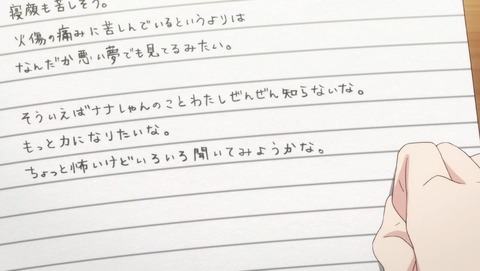 寝顔も苦しそう。
火傷の痛みに苦しんでいるというよりは
なんだか悪い夢でも見てるみたい。
そういえばナナしゃんのことわたしぜんぜん知らないな。
もっと力になりたいな。
ちょっと怖いけどいろいろ聞いてみようかな。